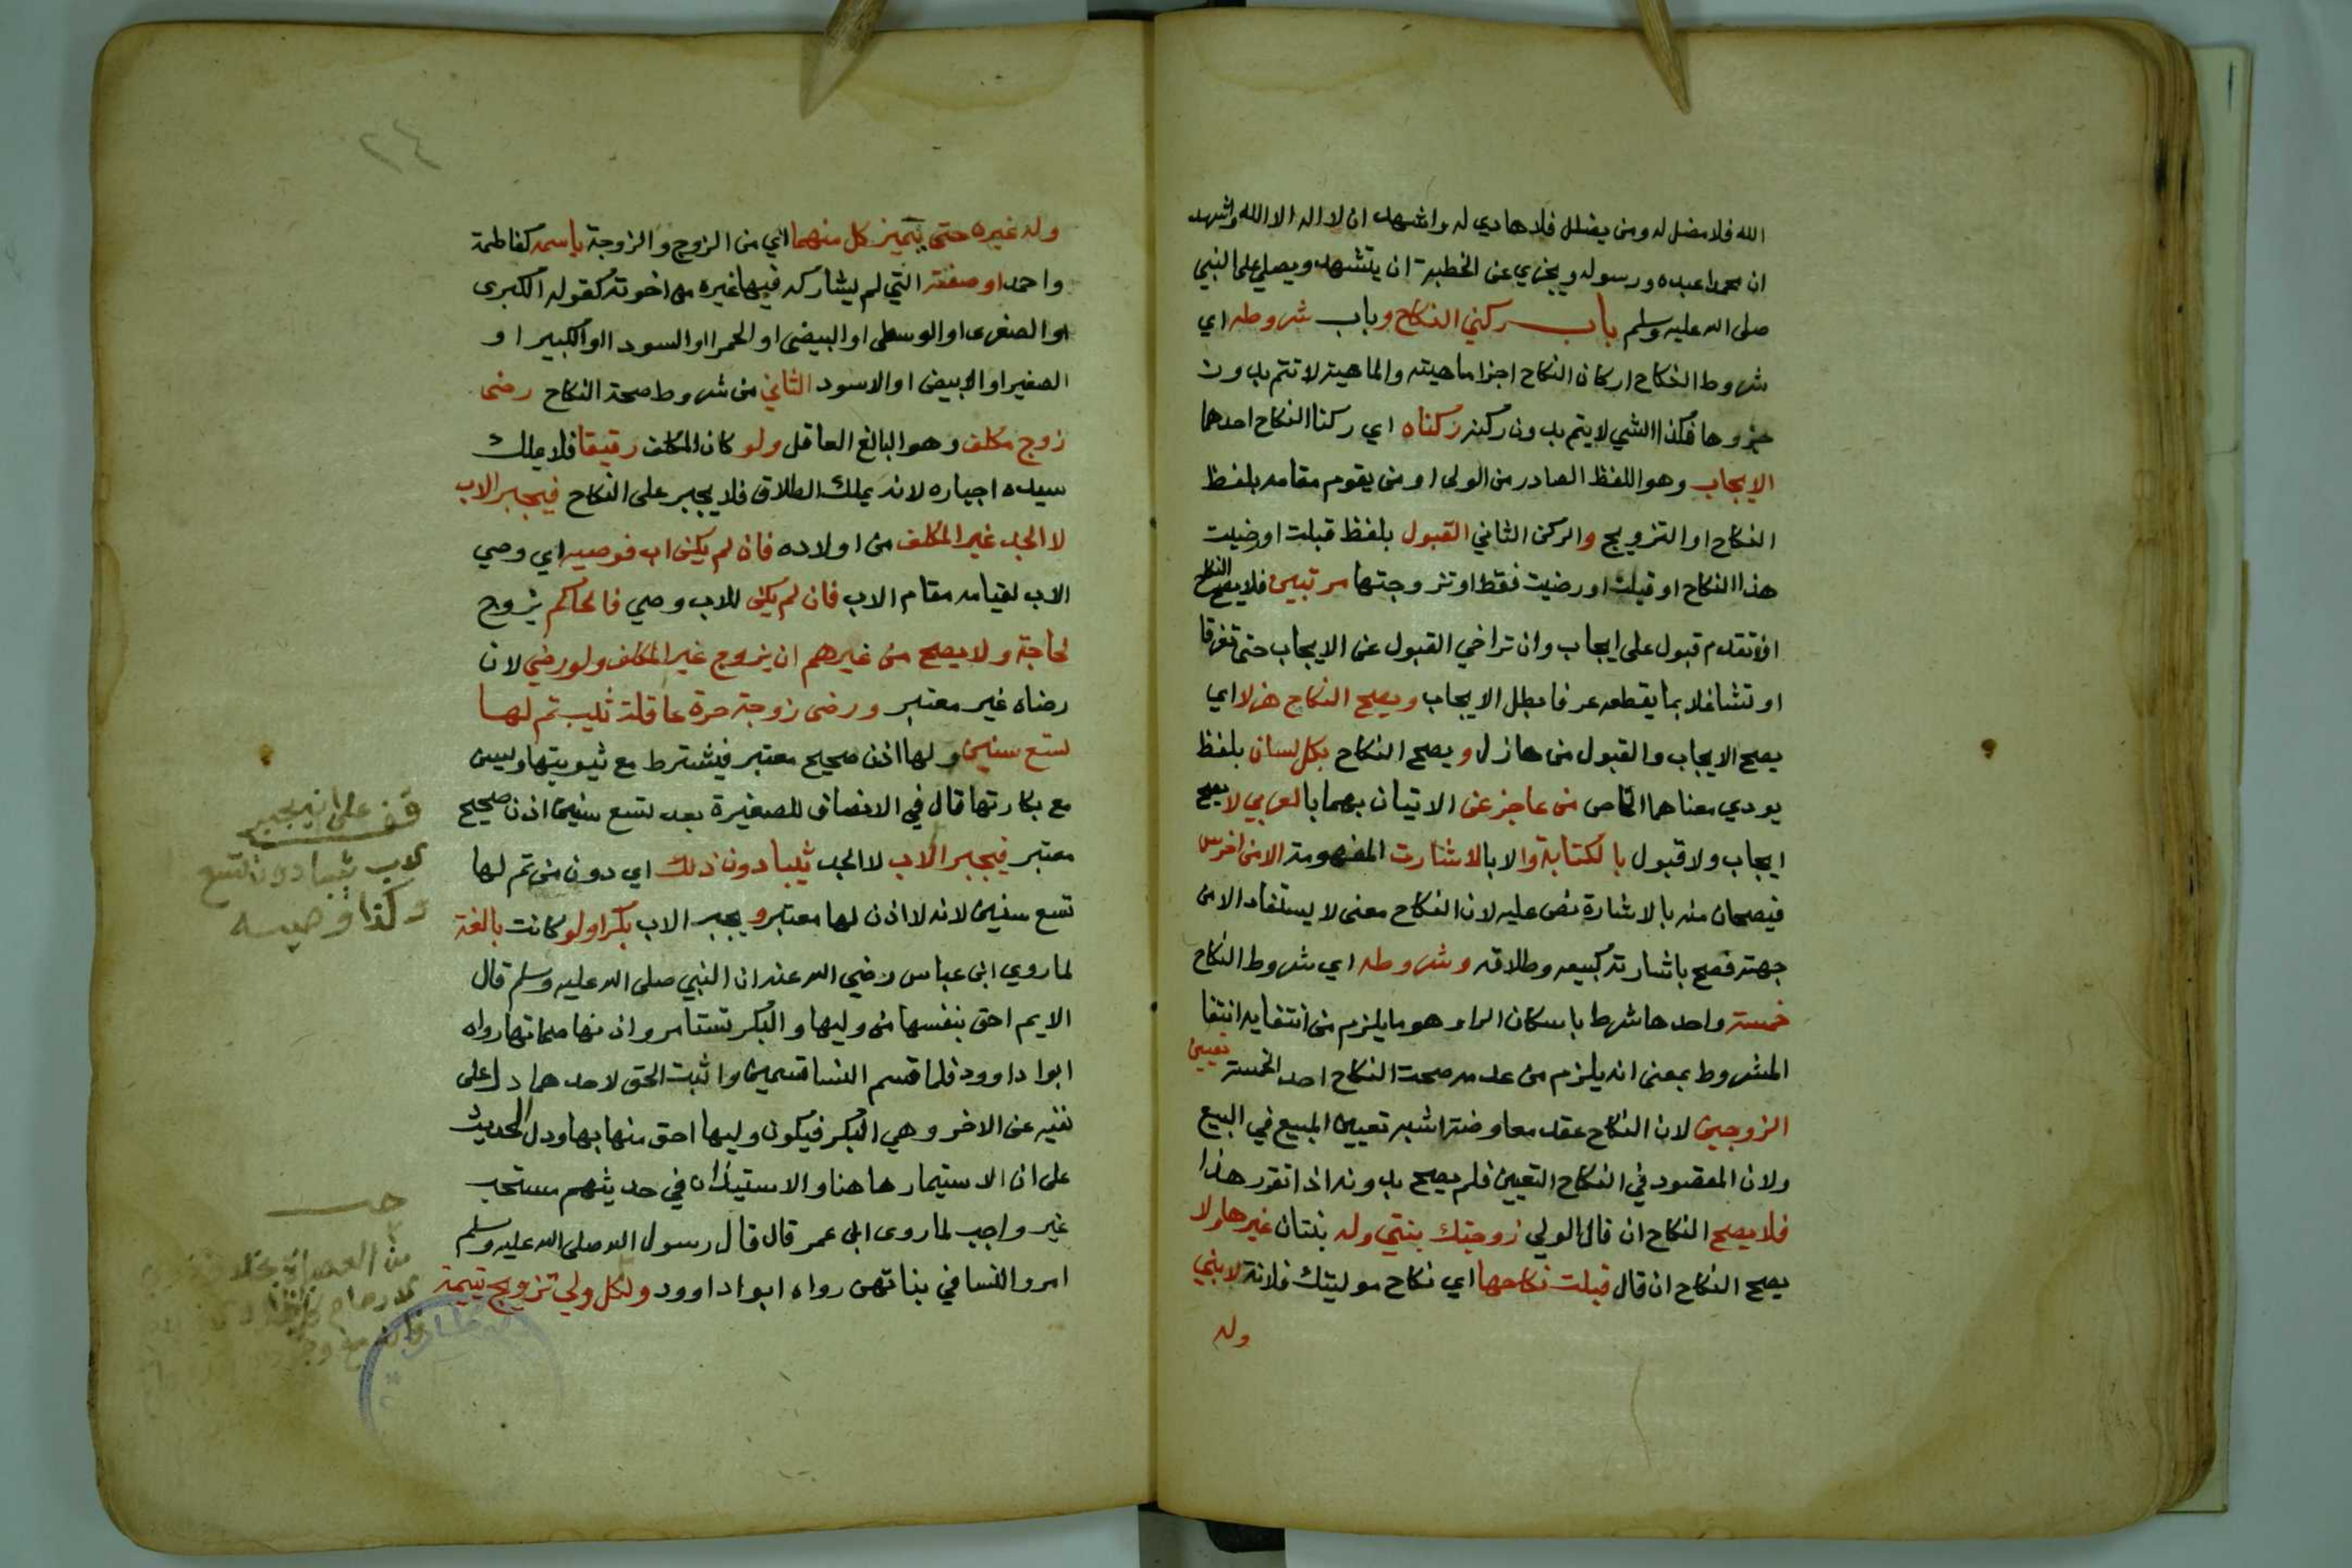 الله فلا مضل له ومن يضلل فلا هادي له واشهد ان لا اله الا الله واشهد
ان محمدا عبده ورسوله ويجزي عن الخطبة ان يتشهد ويصلي على النبي
صلى الله عليه وسلم باب ركني النكاح وباب شروطه اي
شروط النكاح اركان النكاح اجزا ماهيته والماهية لا تتم بدون
جزوها فكذا الشي لا يتم بدون ركنه ركناه اي ركنا النكاح احدهما
الايجاب وهو اللفظ الصادر من الولي او من يقوم مقامه بلفظ
النكاح او التزويج والركن الثاني القبول بلفظ قبلت او رضيت
هذا النكاح او قبلت او رضيت فقط او تزوجتها مرتبين فلا يصح النكاح
ان تقدم قبول على ايجاب وان تراخي القبول عن الايجاب حتى تفرقا
او تشاغلا بما يقطعه عرفا بطل الايجاب ويصح النكاح هزلا اي
يصح الايجاب والقبول من هازل ويصح النكاح بكل لسان بلفظ
يودي معناهما الخاص من عاجز عن الاتيان بهما بالعربي لا يصح
ايجاب ولا قبول بالكتابة والا بالاشارت المفهومة الا من اخرس
فيصحان منه بالاشارة نص عليه لان النكاح معنى لا يستفاد الا من
جهته فصح باشارته كبيعه وطلاقه وشروطه اي شروط النكاح
خمسة واحدها شرط باسكان الراء وهو ما يلزم من انتفايه انتفا
المشروط بمعنى انه يلزم من عدمه صحت النكاح احد الخمسة تعيين
الزوجين لان النكاح عقد معاوضة اشبه تعيين المبيع في البيع
ولان المقصود في النكاح التعيين فلم يصح بدونه اذا تقرر هذا
فلا يصح النكاح ان قال الولي زوجتك بنتي وله بنتان غيرها ولا
يصح النكاح ان قال قبلت نكاحها اي نكاح موليتك فلانة لابني
وله
٢٤
وله غيره حتى يتميز كل منهما اي من الزوج والزوجة باسمه كفاطمة
واحمد او صفته التي لم يشاركه فيها غيره من اخوته كقوله الكبرى
او الصغرى او الوسطى او البيضى او الحمرا او السودا او الكبير او
الصغير او الابيض او الاسود الثاني من شروط صحة النكاح رضى
زوج مكلف وهو البالغ العاقل ولو كان المكلف رقيقا فلا يملك
سيده اجباره لانه يملك الطلاق فلا يجبر على النكاح فيجبر الاب
لا الجد غير المكلف من اولاده فان لم يكن اب فوصيه اي وصي
الاب لقيامه مقام الاب فان لم يكن للاب وصي فالحاكم يزوج
لحاجة ولا يصح من غيرهم ان يزوج غير المكلف ولو رضي لان
رضاه غير معتبر ورضى زوجة حرة عاقلة ثيب تم لها
تسع سنين ولها اذن صحيح معتبر فيشترط مع ثيوبتها ويسن
مع بكارتها قال في الانصاف للصغيرة بعد تسع سنين اذن صحيح
معتبر فيجبر الاب لا الجد ثيبا دون ذلك اي دون من تم لها
تسع سنين لانه لا اذن لها معتبر ويجبر الاب بكرا ولو كانت بالغة
لما روي ابن عباس رضي الله عنه ان النبي صلى الله عليه وسلم قال
الايم احق بنفسها من وليها والبكر تستامر واذنها صماتها رواه
ابوا داوود فلما قسم النسا قسمين واثبت الحق لاحدهما دل على
نفيه عن الاخر وهي البكر فيكون وليها احق منها بها ودل الحديث
على ان الاستيمار هاهنا والاستيذان في حديثهم مستحب
غير واجب لما روى ابن عمر قال قال رسول الله صلى الله عليه وسلم
امروا النسا في بناتهن رواه ابوا داوود ولكل ولي تزويج يتيمة
قف على انه يجبر
الاب ثيبا دون التسع
وكذا وصيه